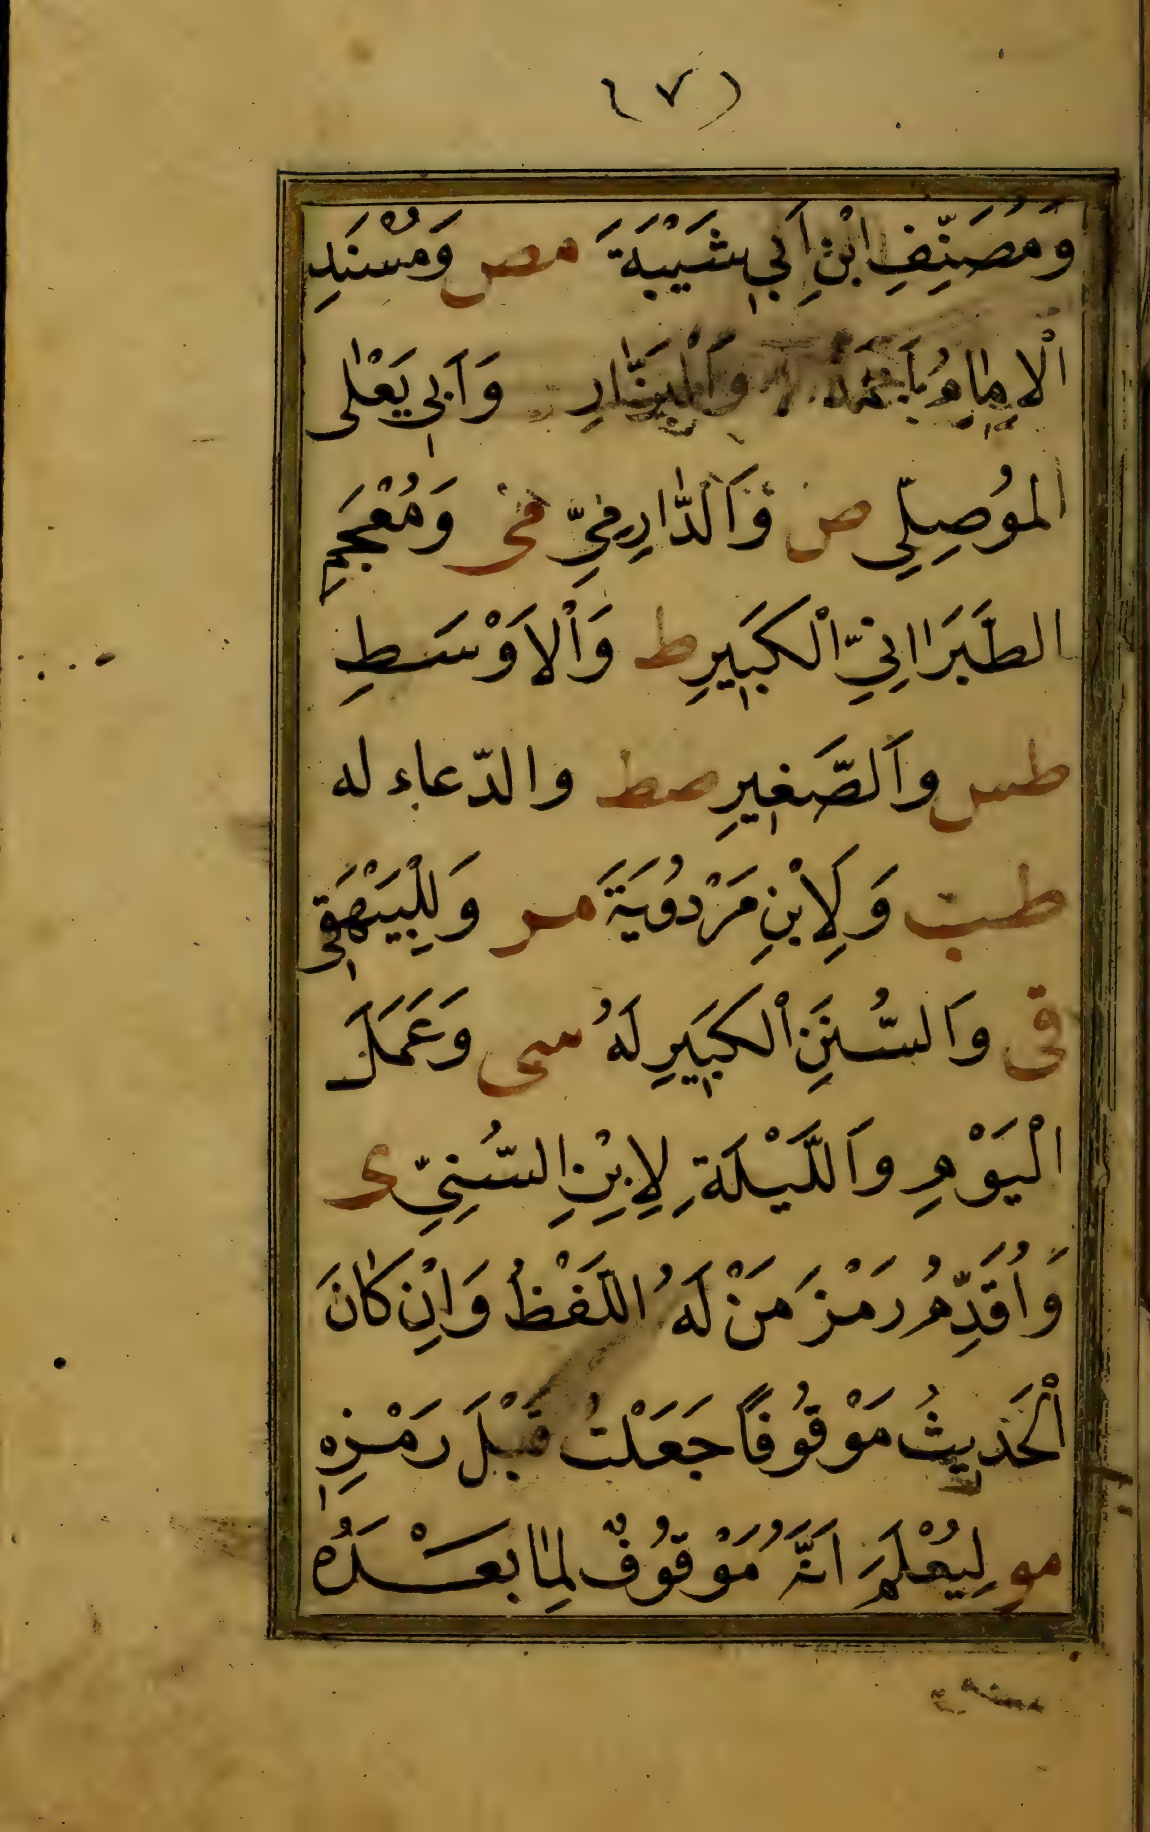 (٧)
وَمُصَنِّفِ ابْنِ اَبِي شَيْبَةَ مص وَمُسْنَدِ
الْاِمَامِ اَحْمَدَ وَالْبَزَّارِ وَاَبِي يَعْلٰى
المُوصِلِي ص وَالدَّارِمِيِّ مى وَمُعْجَمِ
الطَّبَرَاانِيِّ الْكَبَيرِ ط وَالْاَوْسَطِ
طس وَالصَّغِيرِ صط والدّعاء له
طب وَلِابْنِ مَرْدُوَيَةَ مر وَلِلْبَيْهَقِى
قى وَالسُّنَنِ الْكَبَيرِ لَهُ سى وَعَمَلَ
الْيَوْمِ وَاللَّيْلَةِ لِابْنِ السُّنِيِّ ى
وَاُقَدِّمُ رَمْزَ مَنْ لَهُ اللَّفْظُ وَاِنْ كَانَ
الْحَدِيثُ مَوْقُوفًا جَعَلْتُ قَبْلَ رَمْزِهِ
مو لِيُعْلَمَ اَنَّهُ مَوْقُوفٌ لِمَا بَعْدَهُ